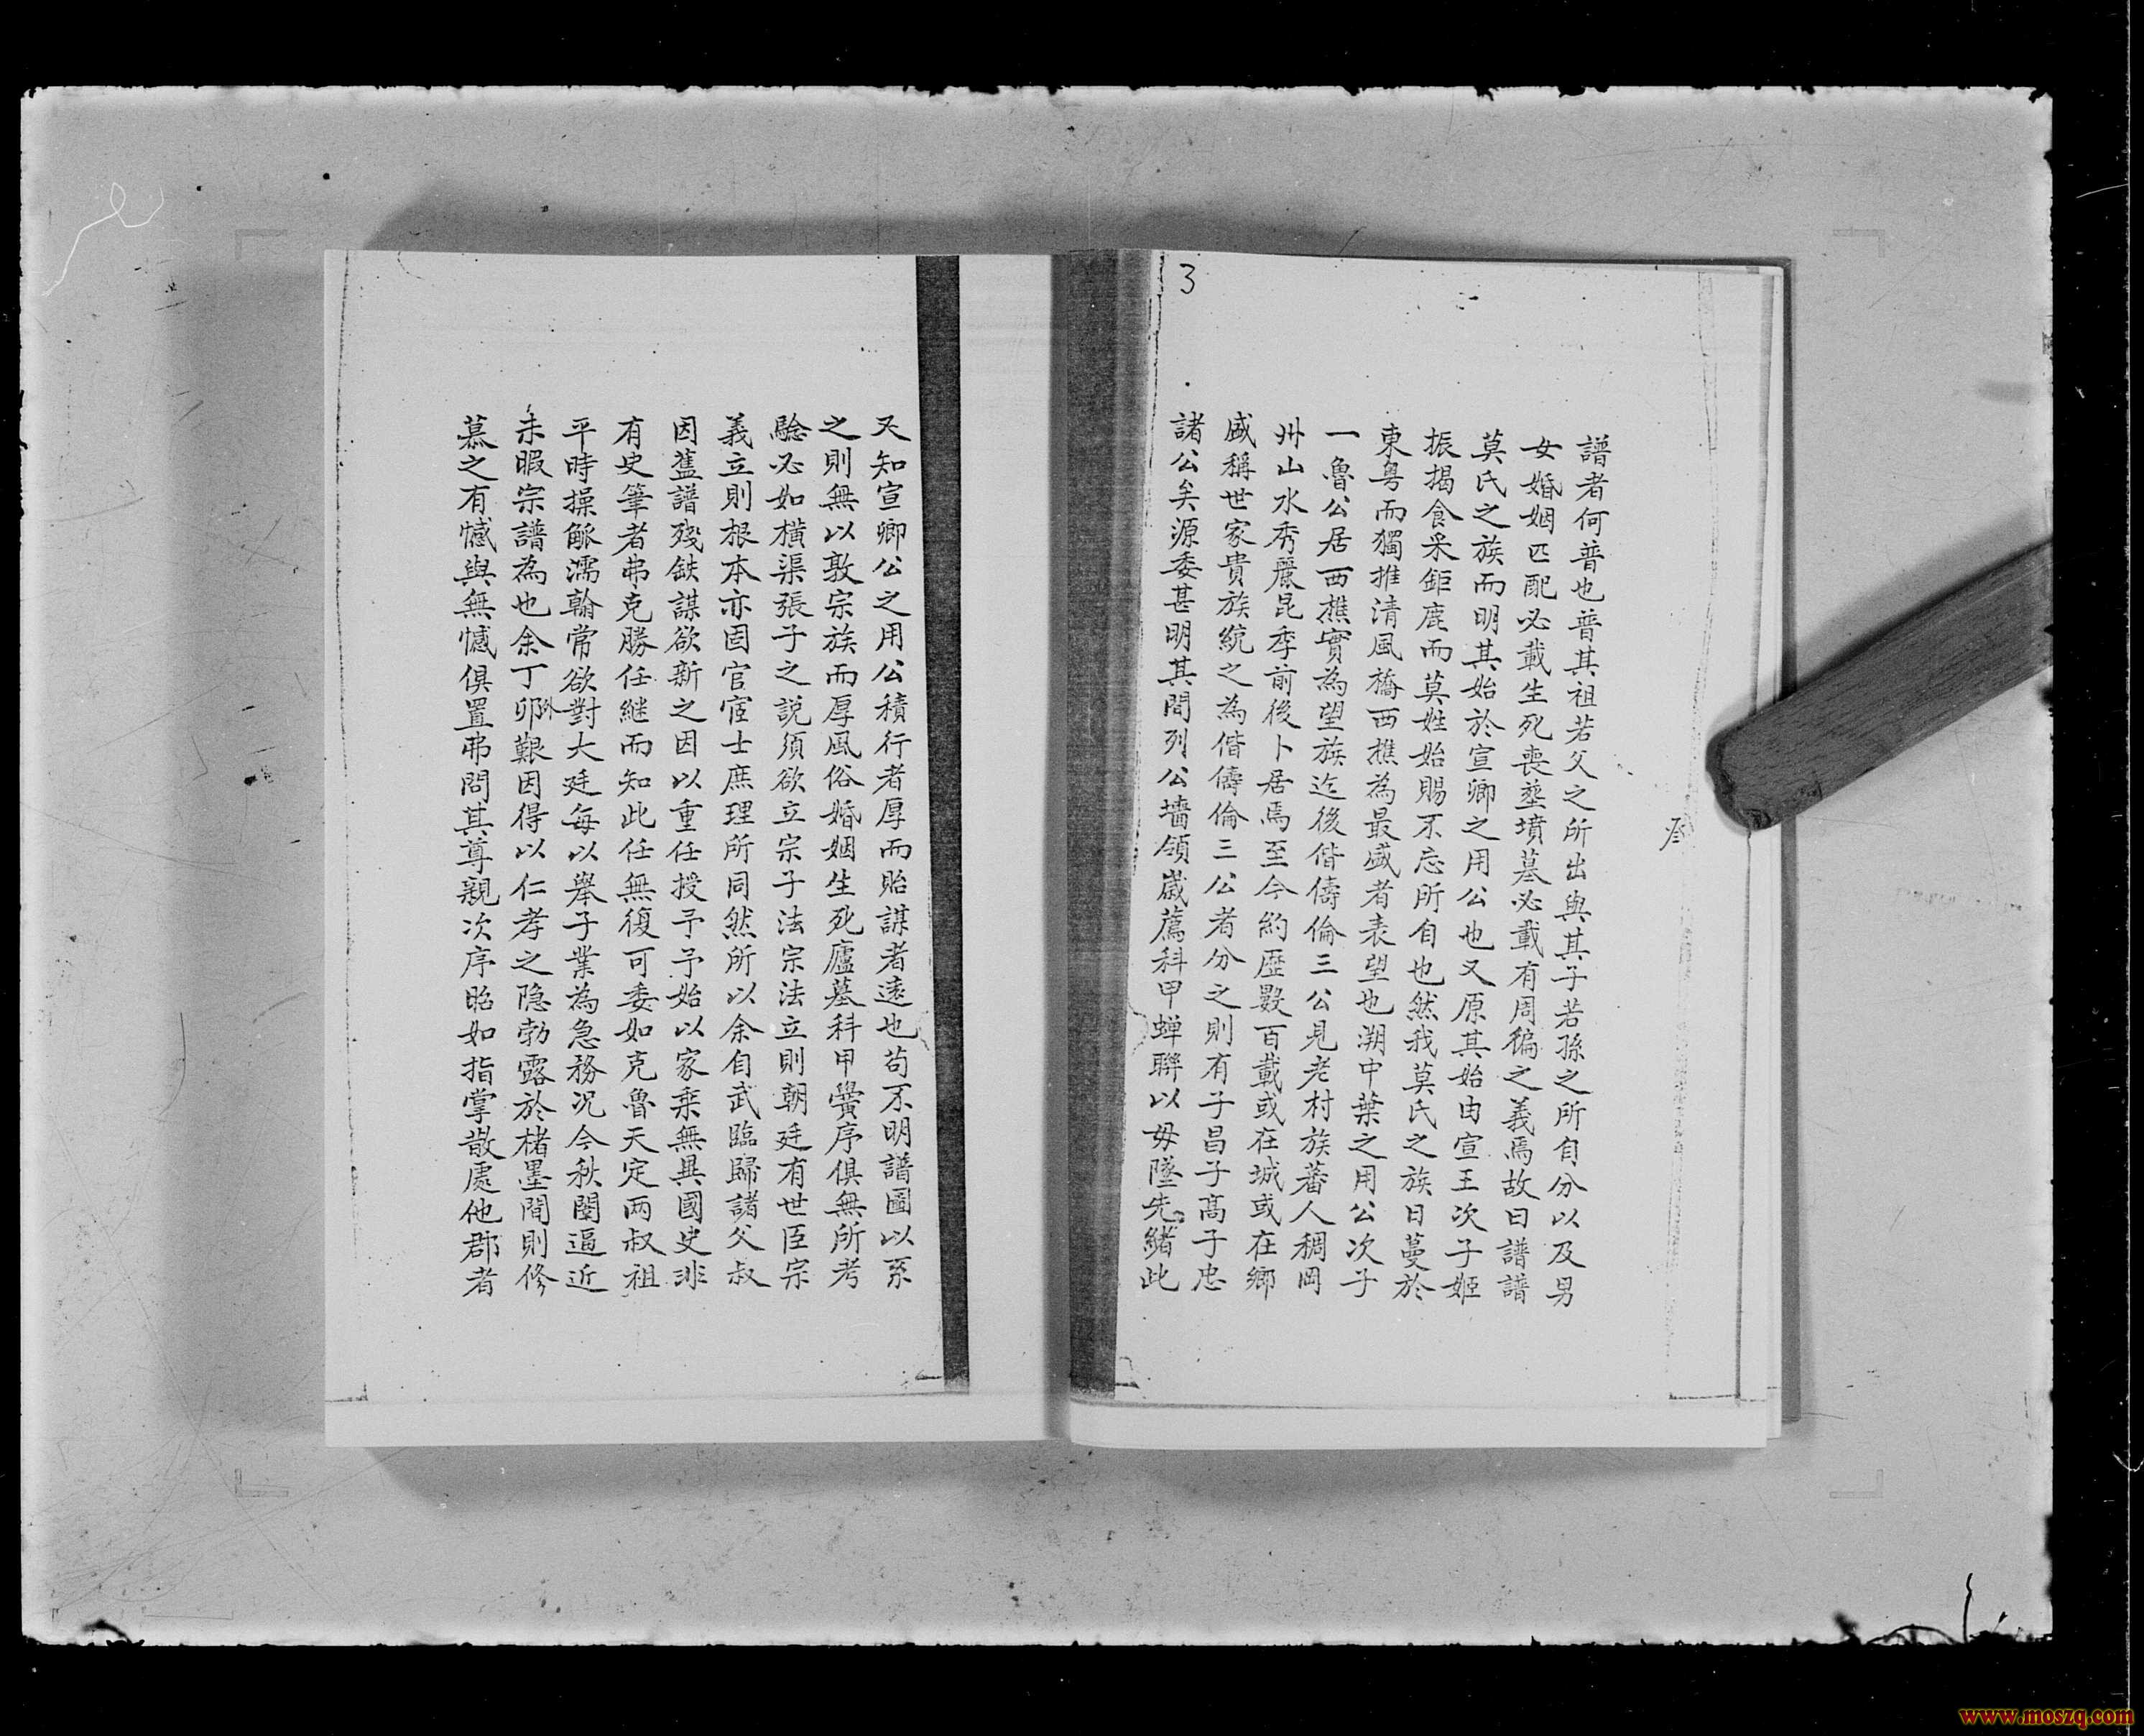 3
譜者何普也普其祖若父之所出與其子若孫之所自分以及男
女婚姻匹配必載生死喪塟墳墓必載有周徧之義焉故曰譜譜
莫氏之族而明其始於宣卿之用公也又原其始由宣王次子姬
振揭食采鉅鹿而莫姓始賜不忘所自也然我莫氏之族日蔓於
東粤而獨推清風橋西樵為最盛者表望也溯中葉之用公次子
一魯公居西樵實為望族迄後偕儔倫三公見老村族蕃人稠岡
州山水秀麗昆季前後卜居焉至今約歷數百載或在城或在鄉
盛稱世家貴族統之為偕儔倫三公者分之則有子昌子髙子忠
諸公矣源委甚明其間列公墻領歲薦科甲蝉聯以毋墜先緒此
又知宣卿公之用公積行者厚而貽謀者遠也苟不明譜圖以系
之則無以敦宗族而厚風俗婚姻生死廬墓科甲黌序俱無所考
驗必如橫渠張子之説須欲立宗子法宗法立則朝廷有世臣宗
義立則根本亦固官宦士庶理所同然所以余自武臨歸諸父叔
因舊譜殘鈌謀欲新之因以重任授予予始以家乘無異國史非
有史筆者弗克勝任継而知此任無復可委如克魯天定两叔祖
平時操觚濡翰常欲對大廷每以舉子業為急務况今秋闈逼近
未暇宗譜為也余丁卯外艱因得以仁孝之隐勃露於楮墨間則修
慕之有憾與無憾俱置弗問其尊親次序昭如指掌散處他郡者
www.moszq.com